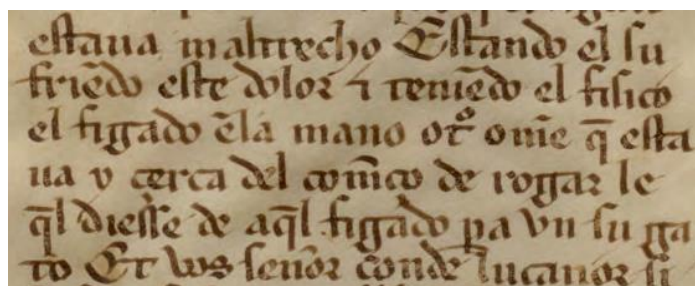 estaua maltrecho Estando el su
friẽdo este dolor ⁊ teniẽdo el fisico
el figado ẽla mano otº om̃e q̃ esta
ua y cerca del com̃co de rogar le
q̃l diesse de aq̃l figado pa vn su ga
to Et vos señor conde lucanor si